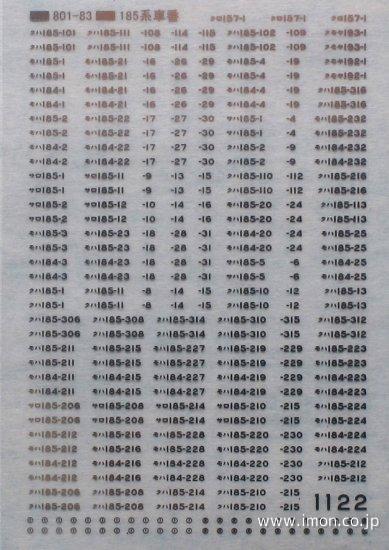 801-83 185系車番 クロ157-1 クロ157-1 クロ157-1
クハ185-101 クハ185-111 -108 -114 -115 クハ185-102 -109 クモヤ193-1
クハ185-101 クハ185-111 -108 -114 -115 クハ185-102 -109 クモヤ193-1
モハ185-1 モハ185-21 -16 -26 -29 モハ185-4 -19 クモヤ192-1
モハ185-1 モハ185-21 -16 -26 -29 モハ185-4 -19 クモヤ192-1
モハ184-1 モハ184-21 -16 -26 -29 モハ184-4 -19 クハ185-316
モハ184-1 モハ184-21 -16 -26 -29 モハ184-4 -19 クハ185-316
モハ185-2 モハ185-22 -17 -27 -30 サハ185-1 -4 モハ185-232
モハ185-2 モハ185-22 -17 -27 -30 サハ185-1 -4 モハ185-232
モハ184-2 モハ184-22 -17 -27 -30 サハ185-2 -9 モハ184-232
モハ184-2 モハ184-22 -17 -27 -30 サハ185-2 -9 モハ184-232
サロ185-1 サロ185-11 -9 -13 -15 クハ185-110 -112 サロ185-216
サロ185-1 サロ185-11 -9 -13 -15 クハ185-110 -112 サロ185-216
サロ185-2 サロ185-12 -10 -14 -16 モハ185-20 -24 クハ185-113
サロ185-2 サロ185-12 -10 -14 -16 モハ185-20 -24 クハ185-113
モハ185-3 モハ185-23 -18 -28 -31 モハ184-20 -24 モハ185-25
モハ185-3 モハ185-23 -18 -28 -31 モハ184-20 -24 モハ185-25
モハ184-3 モハ184-23 -18 -28 -31 サハ185-5 -6 モハ184-25
モハ184-3 モハ184-23 -18 -28 -31 サハ185-5 -6 モハ184-25
クハ185-1 クハ185-11 -8 -14 -15 クハ185-10 -12 クハ185-13
クハ185-1 クハ185-11 -8 -14 -15 クハ185-10 -12 クハ185-13
クハ185-306 クハ185-308 クハ185-314 クハ185-310 -315 クハ185-312
クハ185-306 クハ185-308 クハ185-314 クハ185-310 -315 クハ185-312
モハ185-211 モハ185-215 モハ185-227 モハ185-219 -229 モハ185-223
モハ185-211 モハ185-215 モハ185-227 モハ185-219 -229 モハ185-223
モハ184-211 モハ184-215 モハ184-227 モハ184-219 -229 モハ184-223
モハ184-211 モハ184-215 モハ184-227 モハ184-219 -229 モハ184-223
サロ185-206 サロ185-208 サロ185-214 サロ185-210 -215 サロ185-212
サロ185-206 サロ185-208 サロ185-214 サロ185-210 -215 サロ185-212
モハ185-212 モハ185-216 モハ185-228 モハ185-220 -230 モハ185-224
モハ185-212 モハ185-216 モハ185-228 モハ185-220 -230 モハ185-224
モハ184-212 モハ184-216 モハ184-228 モハ184-220 -230 モハ184-224
モハ184-212 モハ184-216 モハ184-228 モハ184-220 -230 モハ184-224
クハ185-206 クハ185-208 クハ185-214 クハ185-210 -215 クハ185-212
クハ185-206 クハ185-208 クハ185-214 クハ185-210 -215
1122
www.imon.co.jp